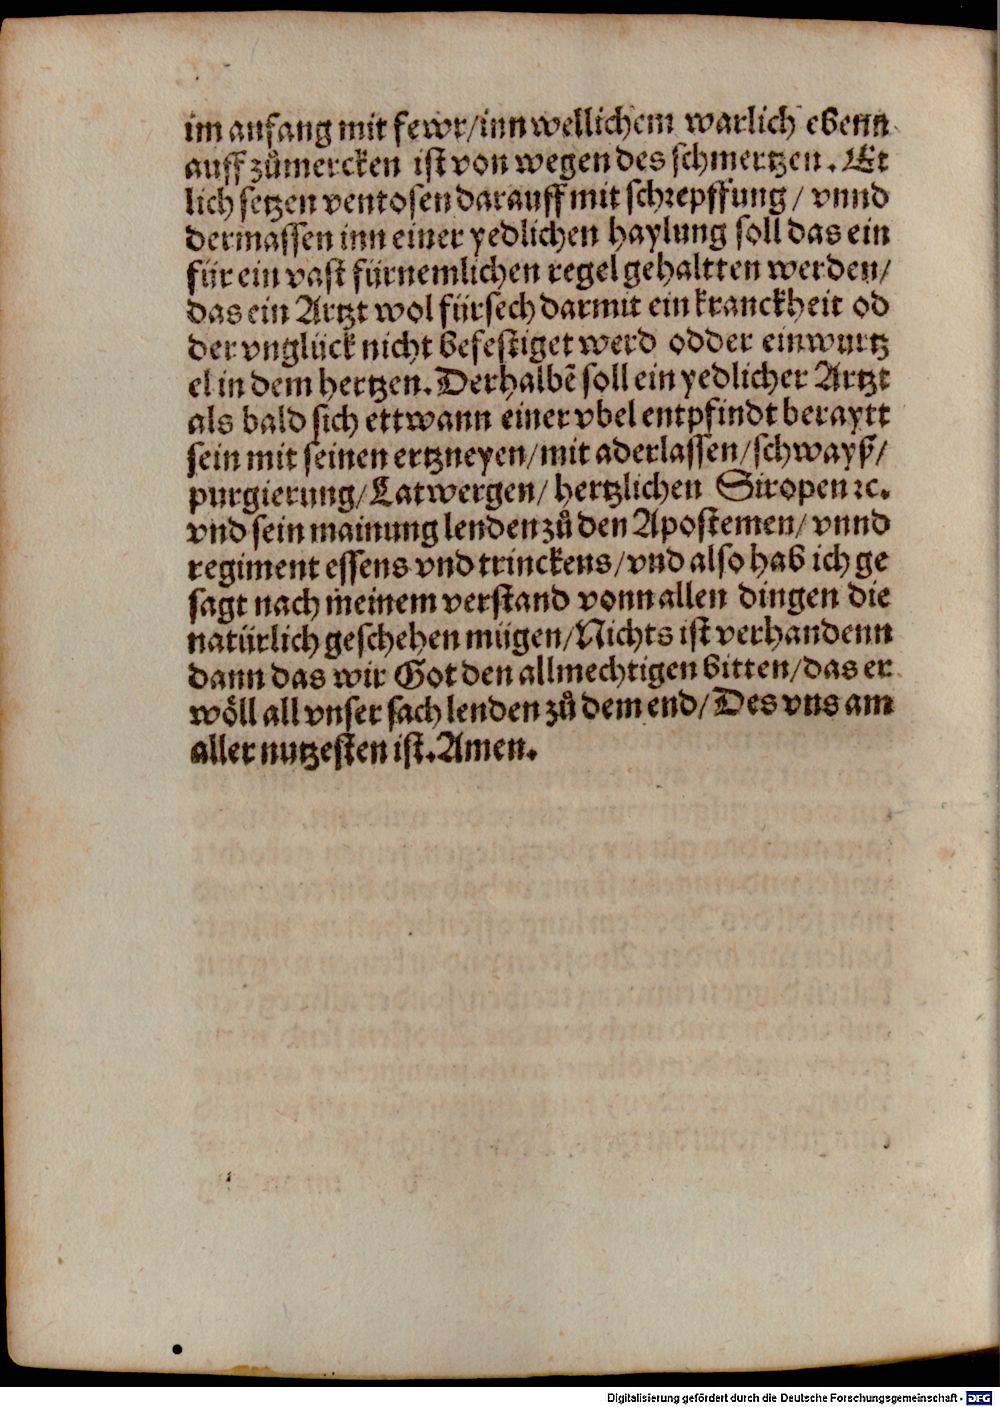 im anfang mit fewr/inn wellichem warlich ebenn
auff zůmercken ist von wegen des schmertzen. Et
lich setzen ventosen darauff mit schrepffung/ vnnd
dermassen inn einer yedlichen haylung soll das ein
für ein vast fürnemlichen regel gehaltten werden/
das ein Artzt wol fürsech darmit ein kranckheit od
der vnglück nicht befestiget werd odder einwurtz
el in dem hertzen. Derhalbē soll ein yedlicher Artzt
als bald sich ettwann einer vbel entpfindt beraytt
sein mit seinen ertzneyen/mit aderlassen/schwayß/
purgierung/Latwergen/ hertzlichen Siropen ꝛc.
vnd sein mainung lenden zů den Apostemen/ vnnd
regiment essens vnd trinckens/vnd also hab ich ge
sagt nach meinem verstand vonn allen dingen die
natürlich geschehen mügen/Nichts ist verhandenn
dann das wir Got den allmechtigen bitten/das er
wöll all vnser sach lenden zů dem end/ Des vns am
aller nutzesten ist. Amen.
Digitalisierung gefördert durch die Deutsche Forschungsgemeinschaft - DFG